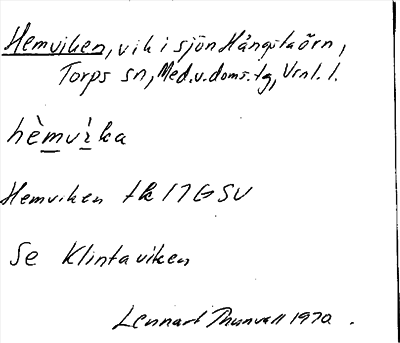 Hemviken, vik i sjön Hångstaörn,
Torps sn, Med. v. doms. tg, Vrnl. l.
hèmvìka
Hemviken tk 17G SV
Se Klintaviken
Lennart Thunvall 1970.